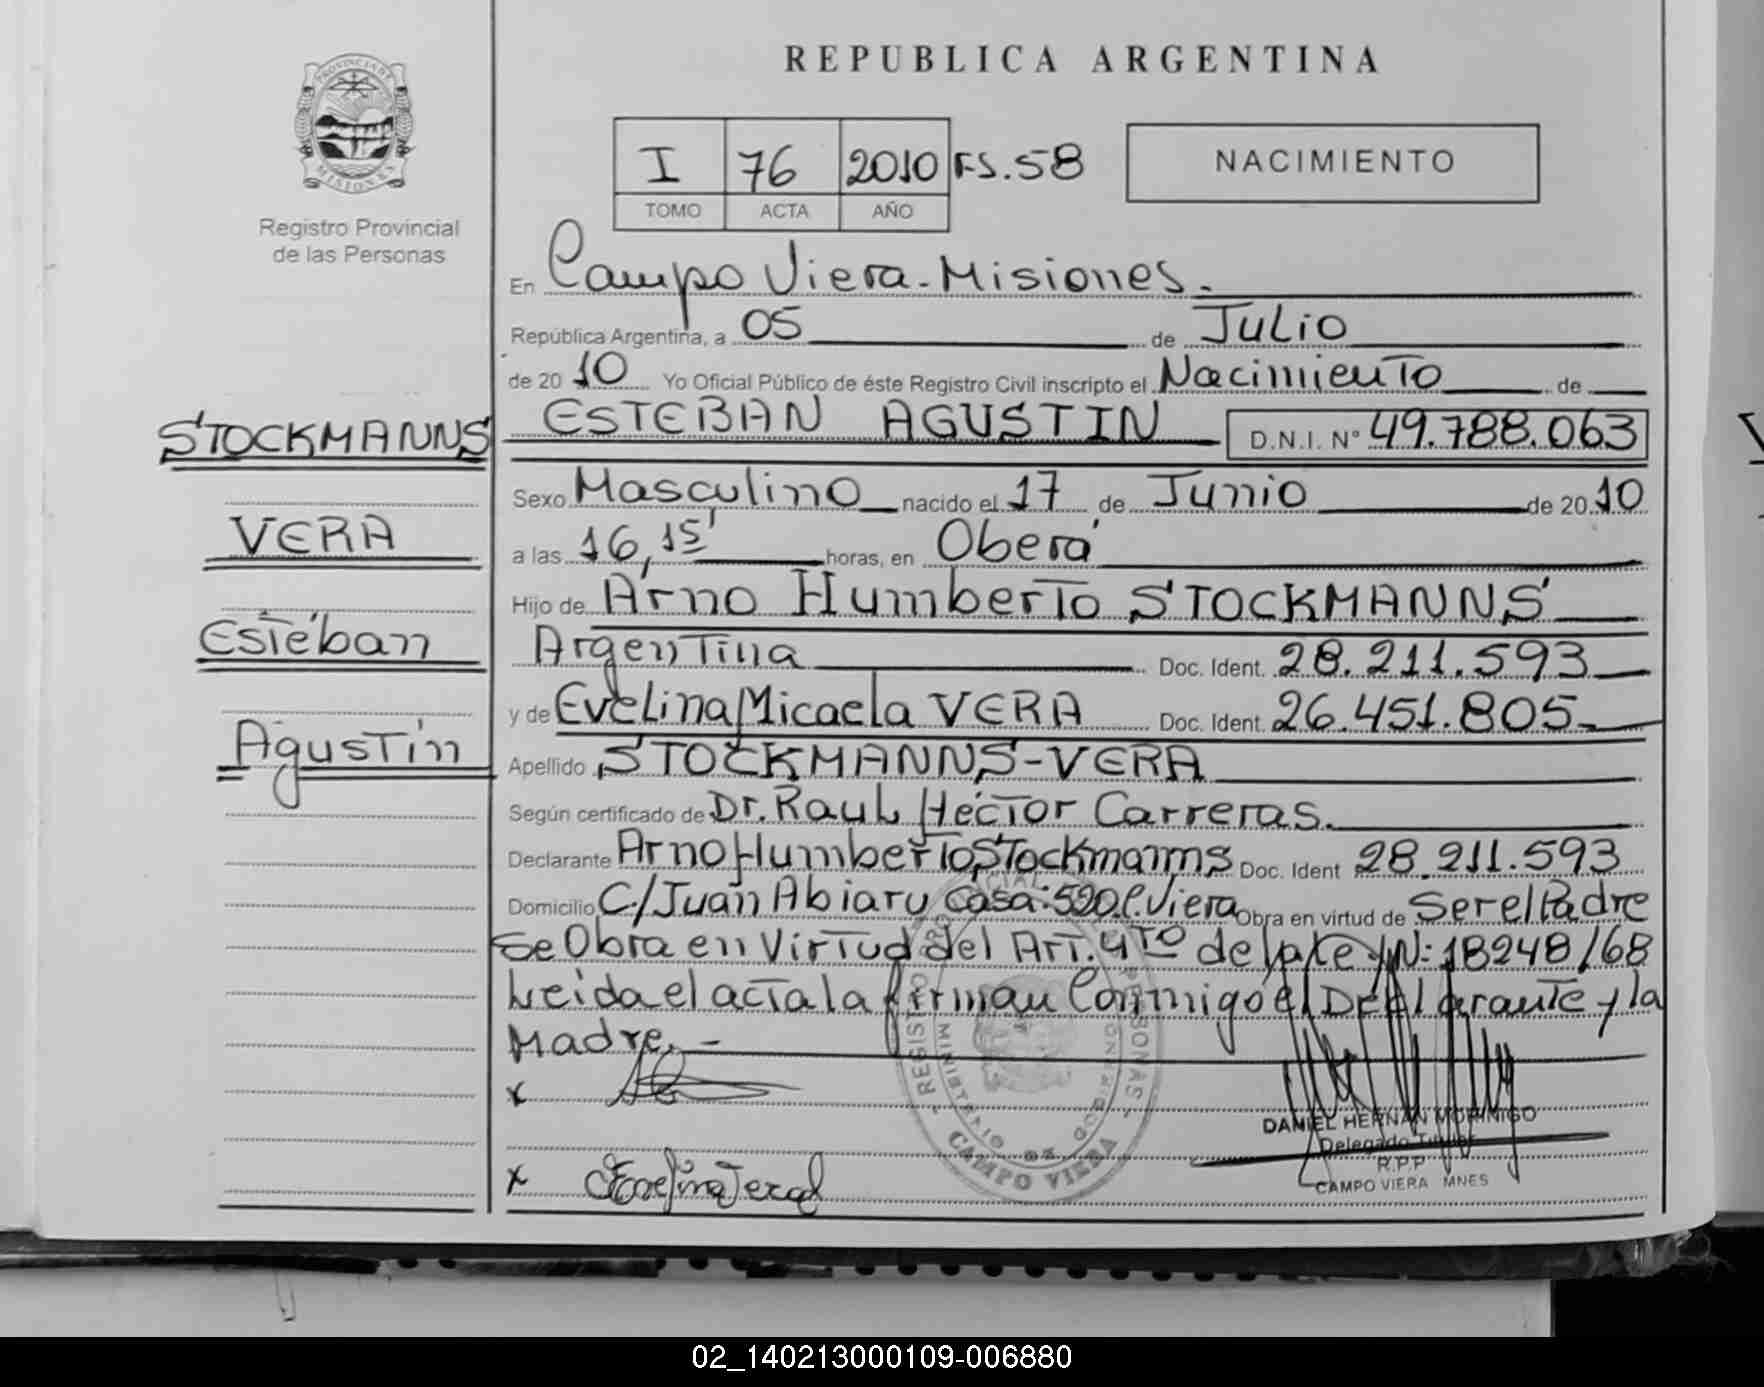 REPUBLICA ARGENTINA
PROVINCIA DE
MISIONES
Registro Provincial
de las Personas
I 76 2010 FS.58
TOMO ACTA AÑO
NACIMIENTO
En Campo Viera-Misiones.
República Argentina, a 05 de Julio
de 2010 Yo Oficial Público de éste Registro Civil inscripto el Nacimiento de
STOCKMANNS
VERA
Esteban
Agustín
ESTEBAN AGUSTIN D.N.I. N° 49.788.063
Sexo Masculino nacido el 17 de Junio de 2010
a las 16,15' horas, en Oberá
Hijo de Arno Humberto STOCKMANNS
Argentina Doc. Ident. 28.211.593
y de Evelina Micaela VERA Doc. Ident. 26.451.805-
Apellido STOCKMANNS-VERA
Según certificado de Dr. Raul Héctor Carreras.
Declarante Arno Humberto Stockmanns Doc. Ident 28.211.593
Domicilio C/Juan Abiaru Casa:520 C.Viera Obra en virtud de Ser el Padre
Se Obra en Virtud del Art. 4to de la Ley N: 18248/68
Leida el acta la firman Conmigo el Declarante y la
Madre.-
x
x
REGISTRO PERSONAS
MINISTERIO DE GOBIERNO
CAMPO VIERA
DANIEL HERNAN MORINIGO
Delegado Titular
R.P.P
CAMPO VIERA MNES
02_140213000109-006880